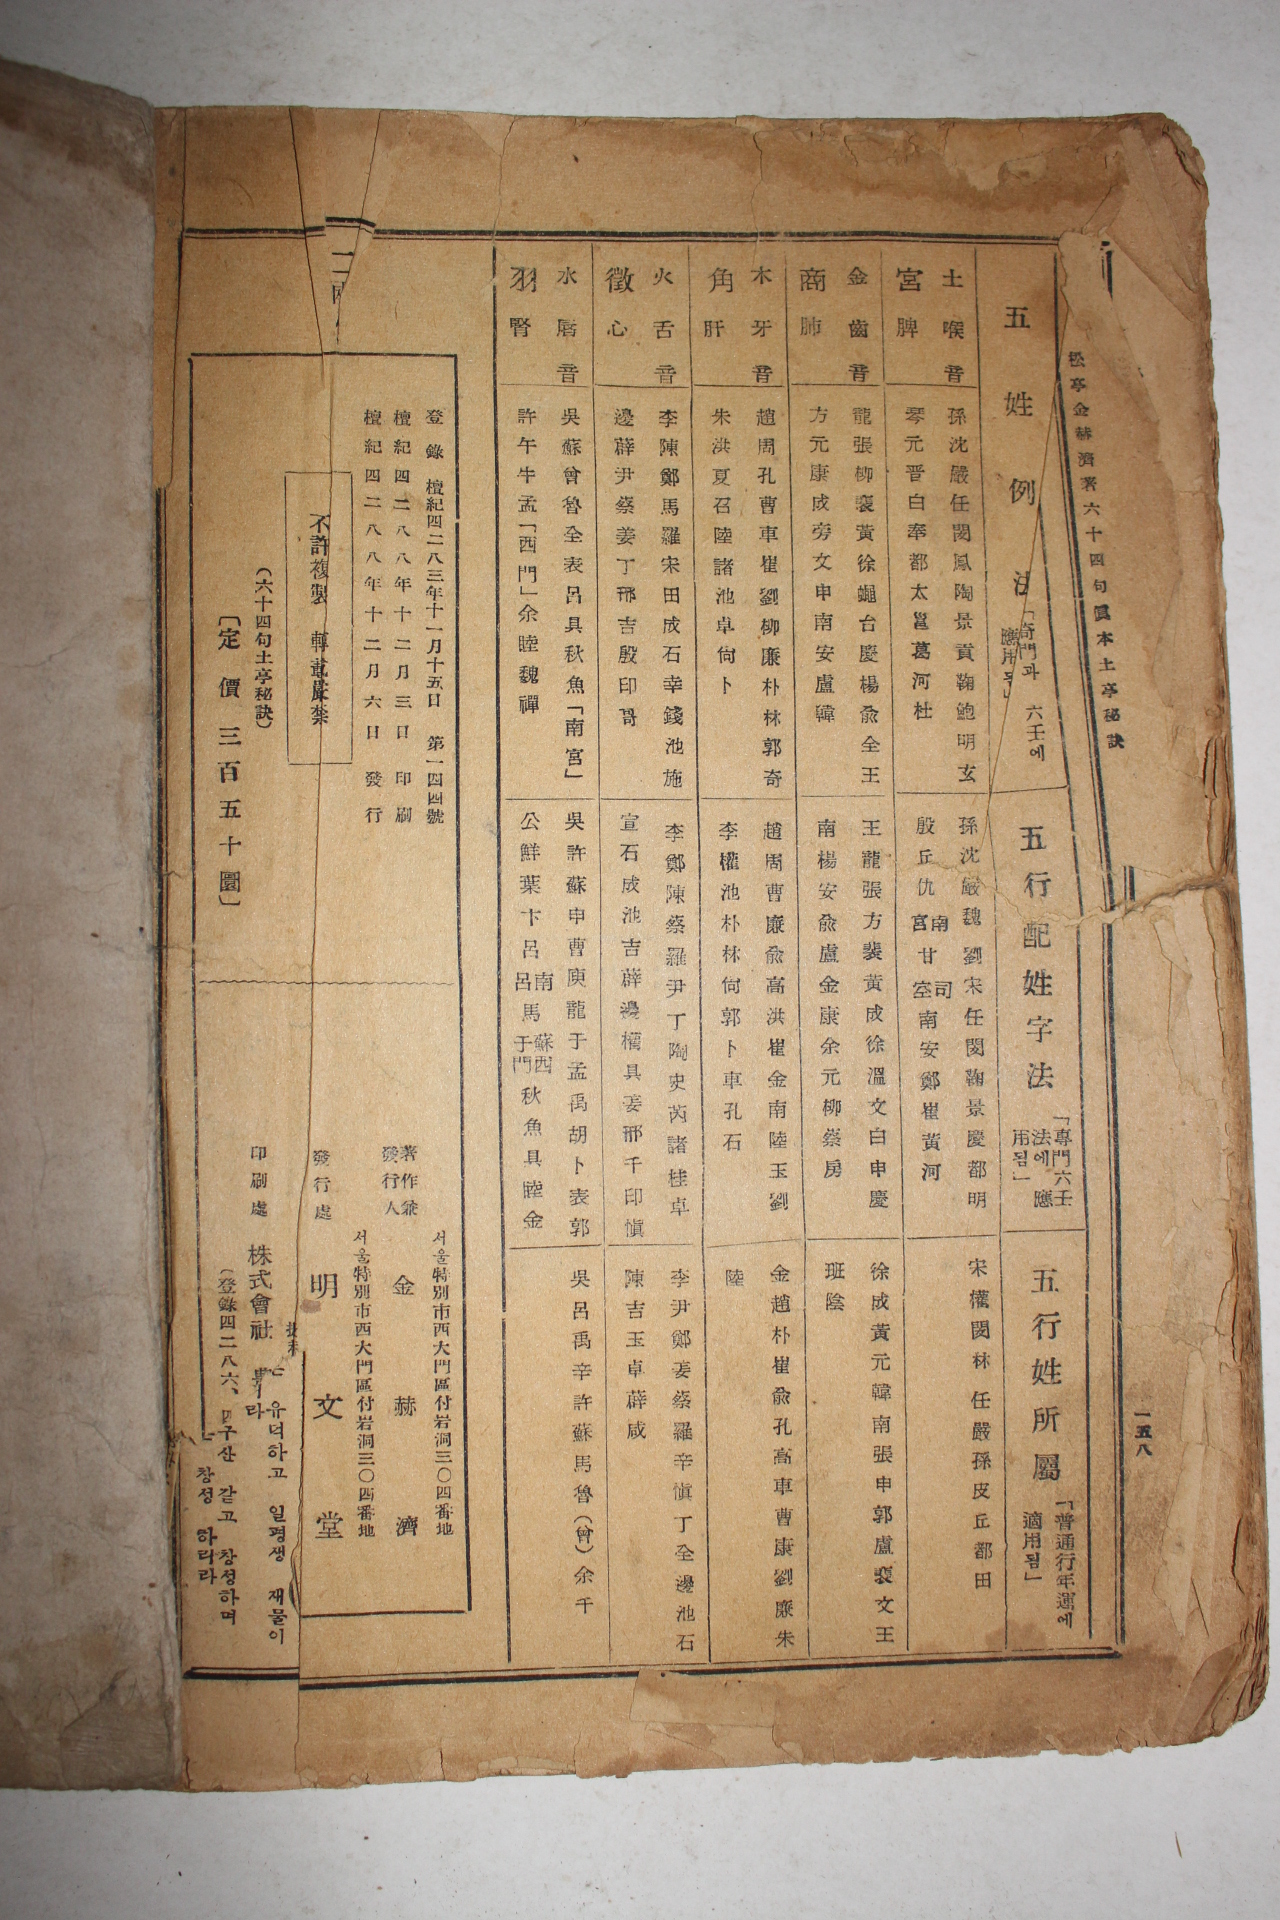 松亭金赫濟著六十四句眞本土亭秘訣
一五八
五姓例法「奇門과 六壬에
應用됨」
五行配姓字法「專門六壬
法에 應
用됨」
五行姓所屬「普通行年運에
適用됨」
土喉音
宮脾
孫沈嚴任閔鳳陶景貢鞠鮑明玄
琴元晋白奉都太邕葛河杜
孫沈嚴魏劉宋任閔鞠景慶都明
殷丘仇南宮甘司空南安鄭崔黃河
宋權閔林任嚴孫皮丘都田
金齒音
商肺
龍張柳裵黃徐蠅台慶楊兪全王
方元康成旁文申南安盧韓
王龍張方裴黃成徐溫文白申慶
南楊安兪盧金康余元柳蔡房
徐成黃元韓南張申郭盧裵文王
班陰
木牙音
角肝
趙周孔曹車崔劉柳廉朴林郭奇
朱洪夏召陸諸池卓尙卜
趙周曹廉兪高洪崔金南陸玉劉
李權池朴林尙郭卜車孔石
金趙朴崔兪孔高車曹康劉廉朱
陸
火舌音
徵心
李陳鄭馬羅宋田成石幸錢池施
邊薛尹蔡姜丁邢吉殷印哥
李鄭陳蔡羅尹丁陶史芮諸桂卓
宣石成池吉薛邊權具姜邢千印愼
李尹鄭姜蔡羅辛愼丁全邊池石
陳吉玉卓薛咸
水唇音
羽腎
吳蘇曾魯全表呂具秋魚「南宮」
許午牛孟「西門」余睦魏禪
吳許蘇申曹庾龍于孟禹胡卜表郭
公鮮葉卞呂南呂馬蘇于西門秋魚具睦金
吳呂禹辛許蘇馬魯(曾)余千
登錄 檀紀四二八三年十一月十五日 第一四四號
檀紀四二八八年十二月三日 印刷
檀紀四二八八年十二月六日 發行
不許複製 轉載嚴禁
(六十四句土亭秘訣)
〔定價 三百五十圜〕
서울特別市西大門區付岩洞三〇四番地
著作兼
發行人 金赫濟
서울特別市西大門區付岩洞三〇四番地
發行處 明文堂
印刷處 株式會社
(登錄四二八六、
유덕하고 일평생 재물이
라
구산 같고 창성하며
창성 하리라